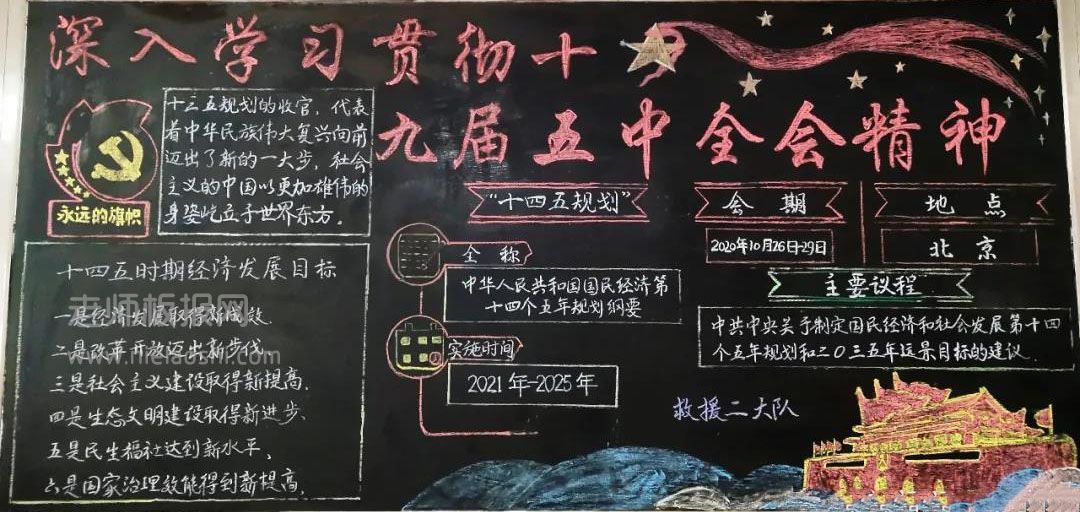 深入学习贯彻十
九届五中全会精神
十三五规划的收官，代表
着中华民族伟大复兴向前
迈出了新的一大步，社会
主义的中国以更加雄伟的
身姿屹立于世界东方。
永远的旗帜
十四五时期经济发展目标
一是经济发展取得新成效.
二是改革开放迈出新步伐、
三是社会主义建设取得新提高、
四是生态文明建设取得新进步、
五是民生福祉达到新水平、
六是国家治理效能得到新提高、
老师板报网
"十四五规划"
全称
中华人民共和国国民经济第
十四个五年规划纲要
实施时间
2021年-2025年
会期
2020年10月26日-29日
地点
北京
主要议程
中共中央关于制定国民经济和社会发展第十四
个五年规划和二〇三五年远景目标的建议.
救援二大队